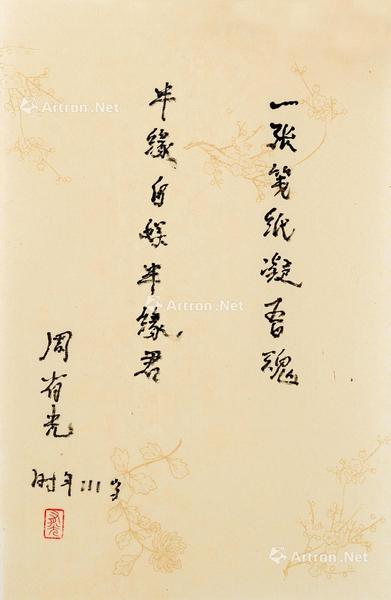 一张笺纸凝吾魂
半缘自娱半缘君
周有光
时年111岁
有光
Artron.Net
Artron.Net
Artron.Net
Artron.Net